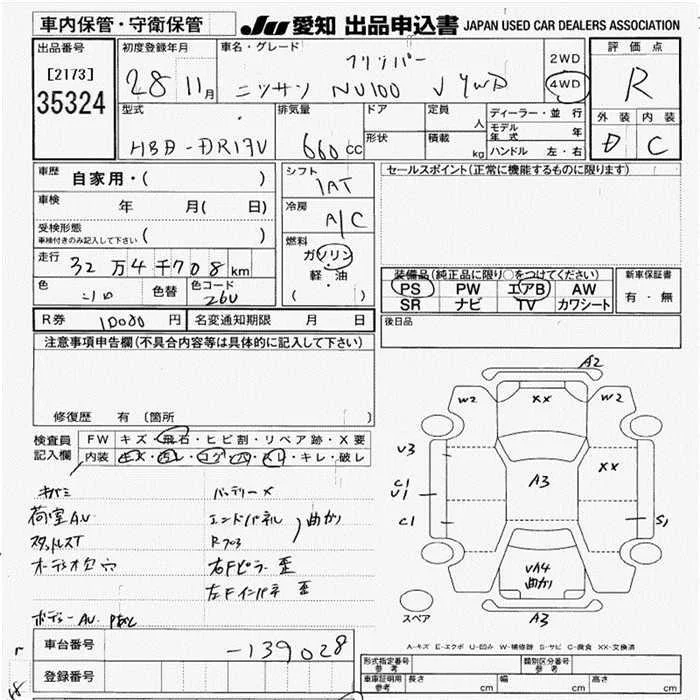 車内保管・守衛保管
JU 愛知 出品申込書 JAPAN USED CAR DEALERS ASSOCIATION
出品番号
[2173]
35324
初度登録年月
28 11月
車名・グレード
クリッパー
ニッサン NV100 V 4WD
2WD
4WD
評価点
R
外装 内装
D C
型式
HBD-DR17V
排気量
660cc
ドア
形状
定員
人
積載
kg
ディーラー・並行
モデル年式 年
ハンドル 左・右
車歴
自家用・( )
車検
年 月( 日)
受検形態
車検付きのみ記入して下さい ( )
走行
32万4千708km
色
シロ
色替
色コード
26U
シフト
1AT
冷房
A/C
燃料
ガソリン
軽・油
( )
セールスポイント(正常に機能するものに限ります)
装備品(純正品に限り○をつけてください)
PS PW エアB AW
SR ナビ TV カワシート
新車保証書
有・無
R券 10000円
名変通知期限 月 日
後日品
注意事項申告欄(不具合内容等は具体的に記入して下さい)
修復歴 有 〔箇所 〕
検査員
記入欄
FW キズ・飛石・ヒビ割・リペア跡・X要
内装 キズ・汚レ・コゲ・穴・スレ・キレ・破レ
キバミ
荷室AU
スタットレスT
オーディオ欠 穴
ボディーAU
バッテリーX
エンドパネル 曲がり
R703
右Fピラー 歪
左Fインパネ 歪
A2
W2
XX
W2
V3
XX
C1
U1
A3
C1
S1
UA4
曲がり
スペア
A3
A-キズ E-エクボ U-凹み W-補修跡 S-サビ C-腐食 XX-交換済
車台番号
-139028
登録番号
型式指定番号
参考
類別区分番号
参考
車庫証明用
参考
長さ cm
幅 cm
高さ cm